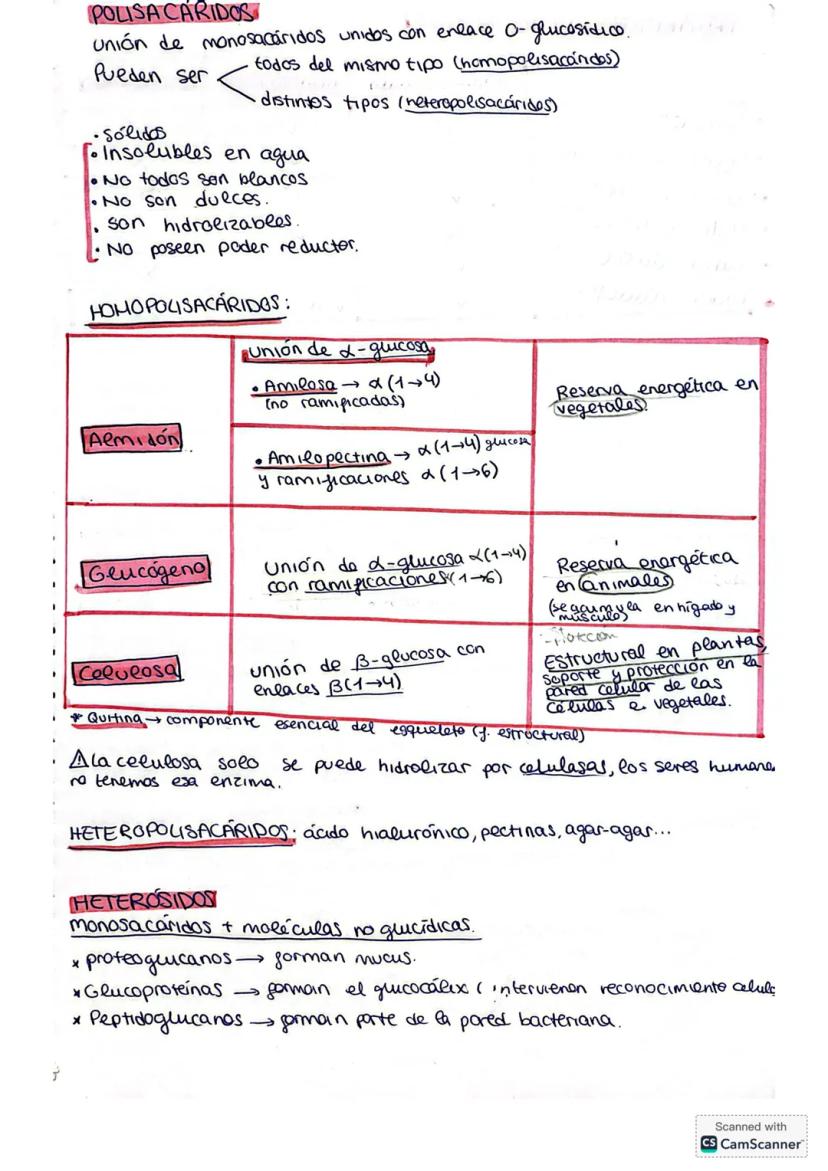 POLISACÁRIDOS
unión de monosacáridos unidos con enlace O-glucosídico.
Pueden ser
todos del mismo tipo (homopolisacáridos)
distintos tipos (heteropolisacáridos)
• Sólidos
• Insolubles en agua
• No todos son blancos
• No son dulces.
. son hidrolizables.
• No poseen poder reductor.
HOMOPOLISACÁRIDOS:
Almidón
Unión de α-glucosa
• Amilosa → α(1→4)
(no ramificadas)
• Amilopectina → α(1→4) glucosa
y ramificaciones α(1→6)
Reserva energética en
vegetales.
Glucógeno
Unión de α-glucosa α(1→4)
con ramificaciones (1→6)
Reserva energética
en animales
(se acumula en hígado y
músculo)
Celulosa
unión de β-glucosa con
enlaces β(1→4)
Estructural en plantas,
soporte y protección en la
pared celular de las
células vegetales.
* Quitina → componente esencial del esqueleto (f. estructural)
⚠ La celulosa solo se puede hidrolizar por celulasas, los seres humano
no tenemos esa enzima.
HETEROPOLISACÁRIDOS: ácido hialurónico, pectinas, agar-agar...
HETERÓSIDOS
monosacáridos + moléculas no glucídicas.
x proteoglucanos → forman mucus.
x Glucoproteínas → forman el glucocálix (intervienen reconocimiento celula
x Peptidoglucanos → forman parte de la pared bacteriana.
Scanned with
CS CamScanner